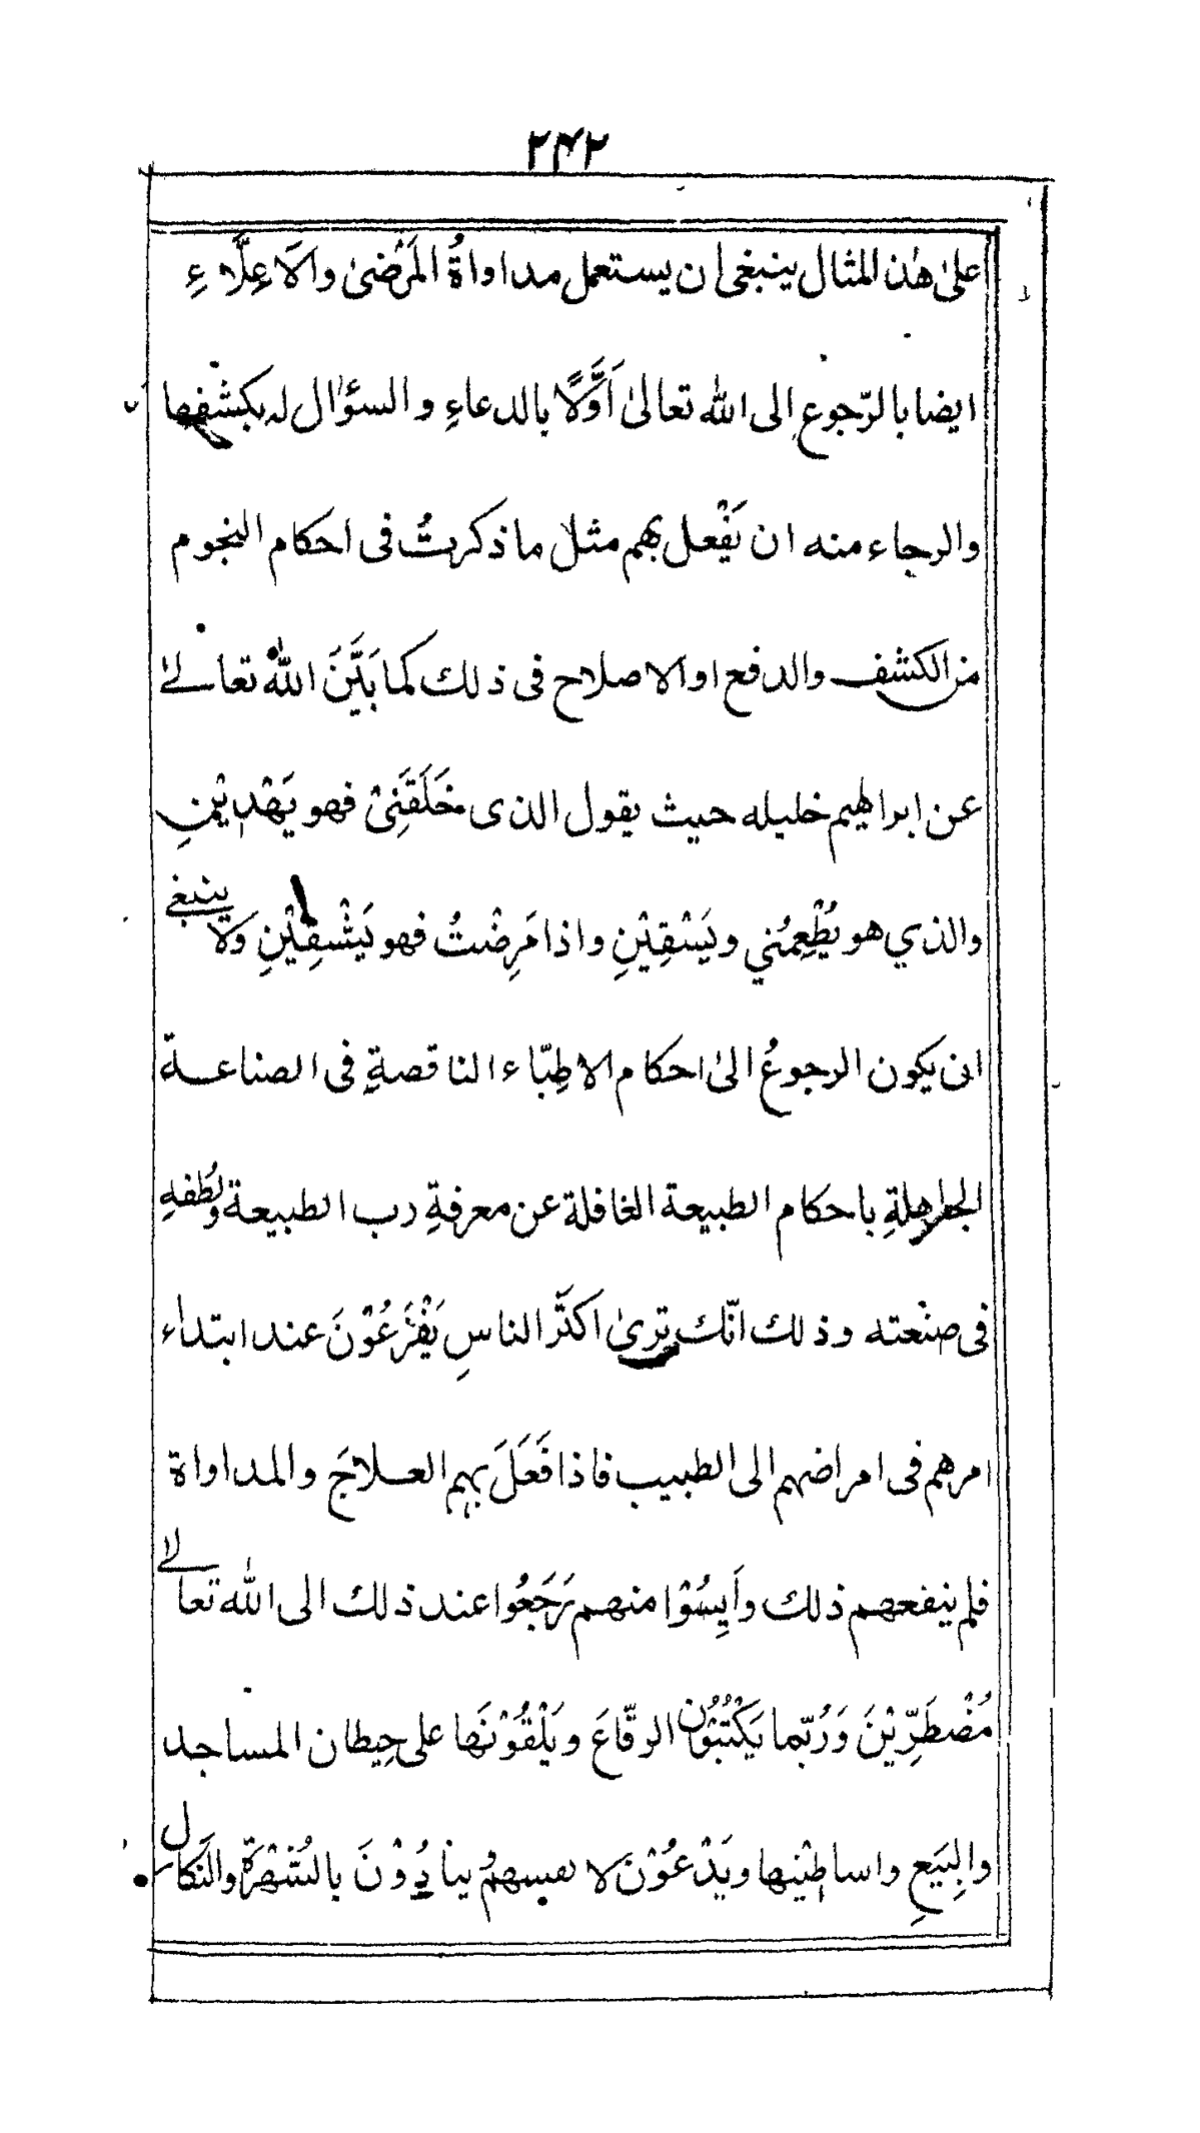 ۲۴۲
علیٰ هٰذا المثال ينبغى ان يستعمل مداواةُ المَرْضىٰ والاَعِلَّاءِ
ايضا بالرّجوع الى الله تعالىٰ اَوَّلًا بالدعاءِ والسؤال له بكشفها
والرجاء منه ان يَفْعل بهم مثل ما ذكرتُ فى احكام النجوم
من الكشف والدفع او الاصلاح فى ذلك كما بَيَّنَ اللّٰه تعالىٰ
عن ابراهيم خليله حيث يقول الذى خَلَقَنِىْ فهو يَهْدِيْنِ
والذي هو يُطْعِمُني ويَسْقِيْنِ واذا مَرِضْتُ فهو يَشْفِيْنِ ولا ينبغى
ان يكون الرجوعُ الىٰ احكام الاطِبّاء الناقصةِ فى الصناعة
الجاهلةِ باحكام الطبيعة الغافلة عن معرفةِ رب الطبيعة ولُطفهِ
فى صنْعته وذلك انّك ترىٰ اكثَرَ الناسِ يَفْزَعُوْنَ عند ابتداء
امرهم فى امراضهم الى الطبيب فاذا فَعَلَ بهم العلاجَ والمداواة
فلم ينفعهم ذلك واَيِسُوْا منهم رَجَعُوا عند ذلك الى الله تعالىٰ
مُضْطَرِّيْنَ وَرُبّما يَكْتُبُوْن الرقّاعَ ويَلْقُوْنَها على حِيطان المساجد
والبِيَعِ واساطِيْنها ويَدْعُوْن لانفسهمْ ينادُوْنَ بالشُهْرَةِ والنَكال